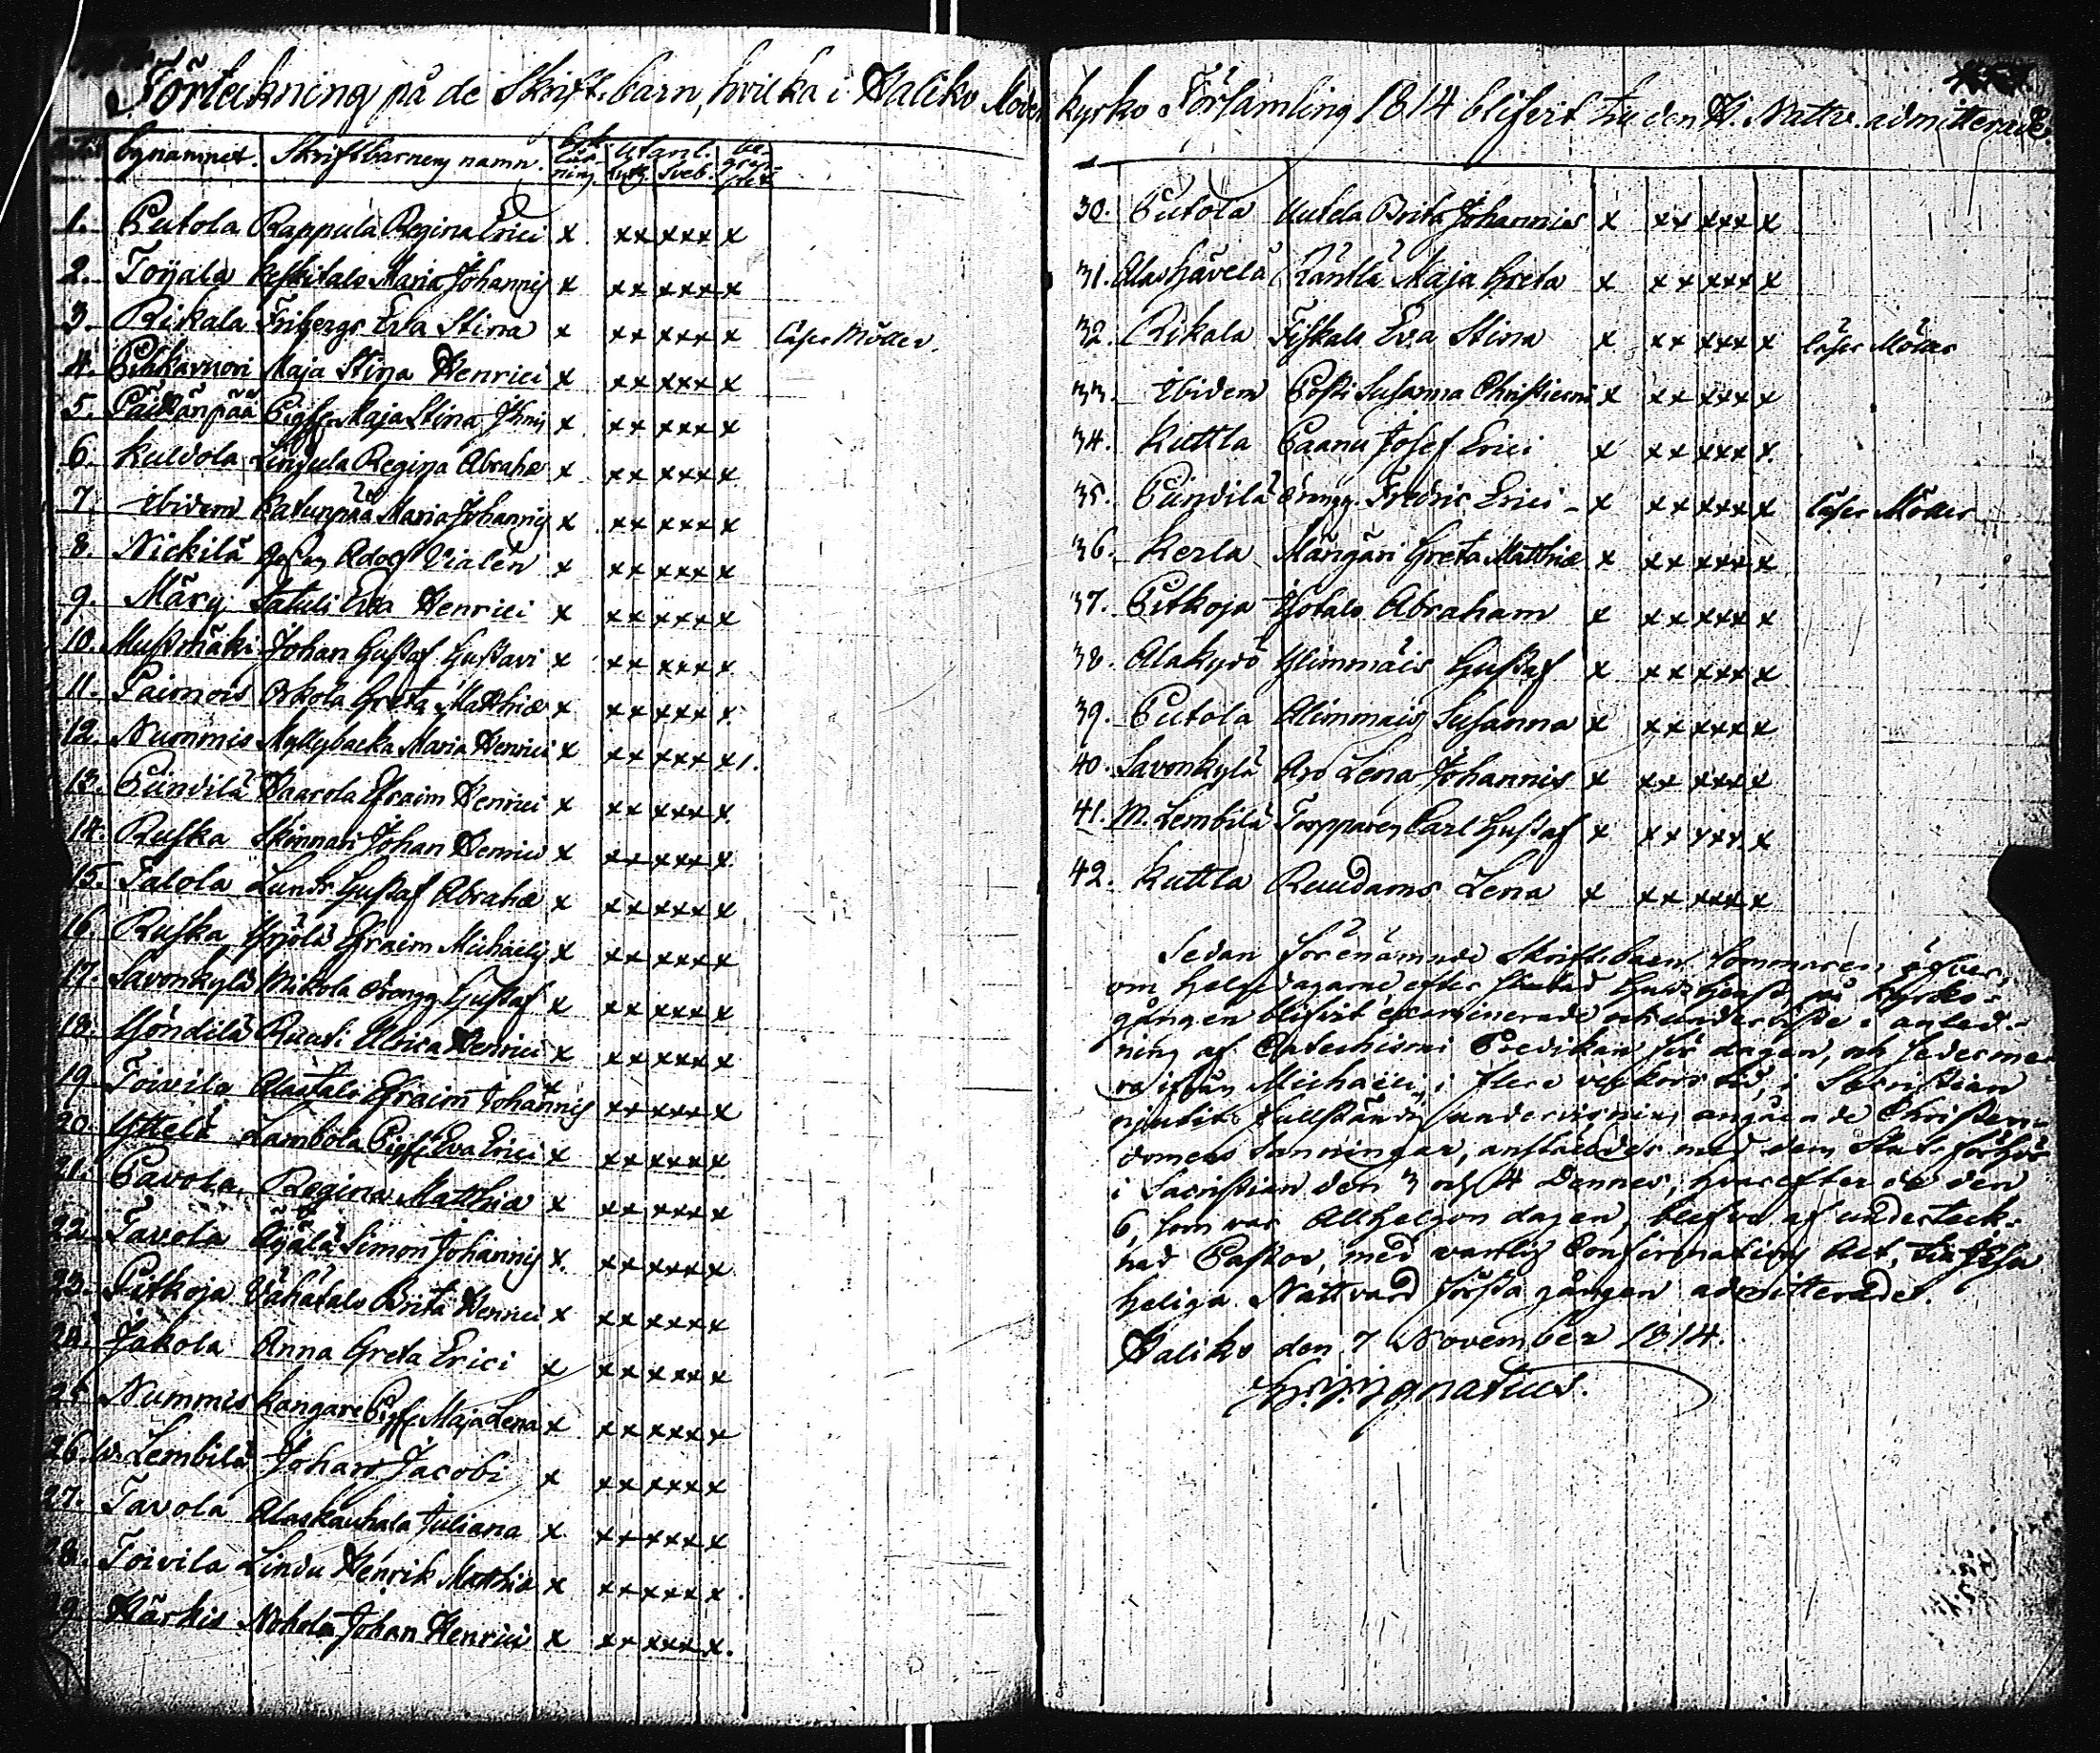 Förteckning på de Skrift-barn, hvilka i Haliko Moder kyrko Församling 1814 blifvit till den H. Nattv. admitterade.
bynamnet. Skriftbarnens namn. Utanl. be-
1. Putola Rappula Regina Erici x xx xxx x
2. Toijala Keskitalo Maria Johannis x xx xxx x
3. Rikala Fribergs Eva Stina x xx xxx x läser Möller.
4. Pitkävuori Maja Stina Henrici x xx xxx x
5. Päidänpää Pig. Maja Stina Jhnis x xx xxx x
6. Kuldola Lindula Regina Abrahæ x xx xxx x
7. Ibidem Katunpää Maria Johannis x xx xxx x
8. Nickilä Adolf Vialen x xx xxx x
9. Märy Tatuli Eva Henrici x xx xxx x
10. Mustmäki Johan Gustaf Gustavi x xx xxx x
11. Paimois Orkola Greta Matthiæ x xx xxx x
12. Nummis Myllybacka Maria Henrici x xx xxx x
13. Pundilä Haarola Efraim Henrici x xx xxx x
14. Ruska Skinnari Johan Henrici x xx xxx x
15. Talola Lundr. Gustaf Abrahæ x xx xxx x
16. Ruska Yrjölä Efraim Michaelis x xx xxx x
17. Savonkylä Mikola drengg Gustaf x xx xxx x
18. Yöndilä Ruati Ulrica Henrici x xx xxx x
19. Toivila Alastalo Efraim Johannis x xx xxx x
20. Yttelä Lambola Pig. Eva Erici x xx xxx x
21. Pavola Regina Matthiæ x xx xxx x
22. Tavola Äijälä Simon Johannis x xx xxx x
23. Pitkoja Vähätalo Brita Henrici x xx xxx x
24. Jakola Anna Greta Erici x xx xxx x
25. Nummis Kangare Pig. Maja Lena x xx xxx x
26. W. Lembilä Johan Jacobi x xx xxx x
27. Tavola Alaskauhala Juliana x xx xxx x
28. Toivila Lindu Henrik Matthiæ x xx xxx x
29. Härkis Nohola Johan Henrici x xx xxx x
30. Putola Uutela Brita Johannis x xx xxx x
31. Alashävelä Räntlä Maja Greta x xx xxx x
32. Rikala Fiskals Eva Stina x xx xxx x läser Möller
33. Ibidem Posti Susanna Christierni x xx xxx x
34. Kuttla Paanu Josef Erici x xx xxx x
35. Pundilä drengg. Fredric Erici x xx xxx x läser Möller
36. Kerla Mängäri Greta Matthiæ x xx xxx x
37. Pitkoja Yotalo Abraham x xx xxx x
38. Alakyrö Ylimmäis Gustaf x xx xxx x
39. Putola Alimmais Susanna x xx xxx x
40. Savonkylä Aro Lena Johannis x xx xxx x
41. M. Lembilä Torpparen Carl Gustaf x xx xxx x
42. Kuttla Ruudams Lena x xx xxx x
Sedan förenämnde Skrift-barn Sommaren öfver,
om helgedagarne efter slutad Gudstjenst, på kyrko-
gången blifvit examinerade och underviste i anled-
ning af Catechismi Predikan för dagen, och sedermera
ifrån Michaeli, i flere veckors tid, i Sacristian
njutit fullständig undervisning angående Christen-
domens sanningar, anställdes med dem Slutförhör
i Sacristian den 3 och 4 Dennes, hvarefter de den
6, som var Allhelgon dagen, blefvo af underteck-
nad Pastor, med vanlig Confirmations Act, till Jesu
heliga Nattvard första gången admitterade.
Haliko den 7 November 1814.
Ignatius.